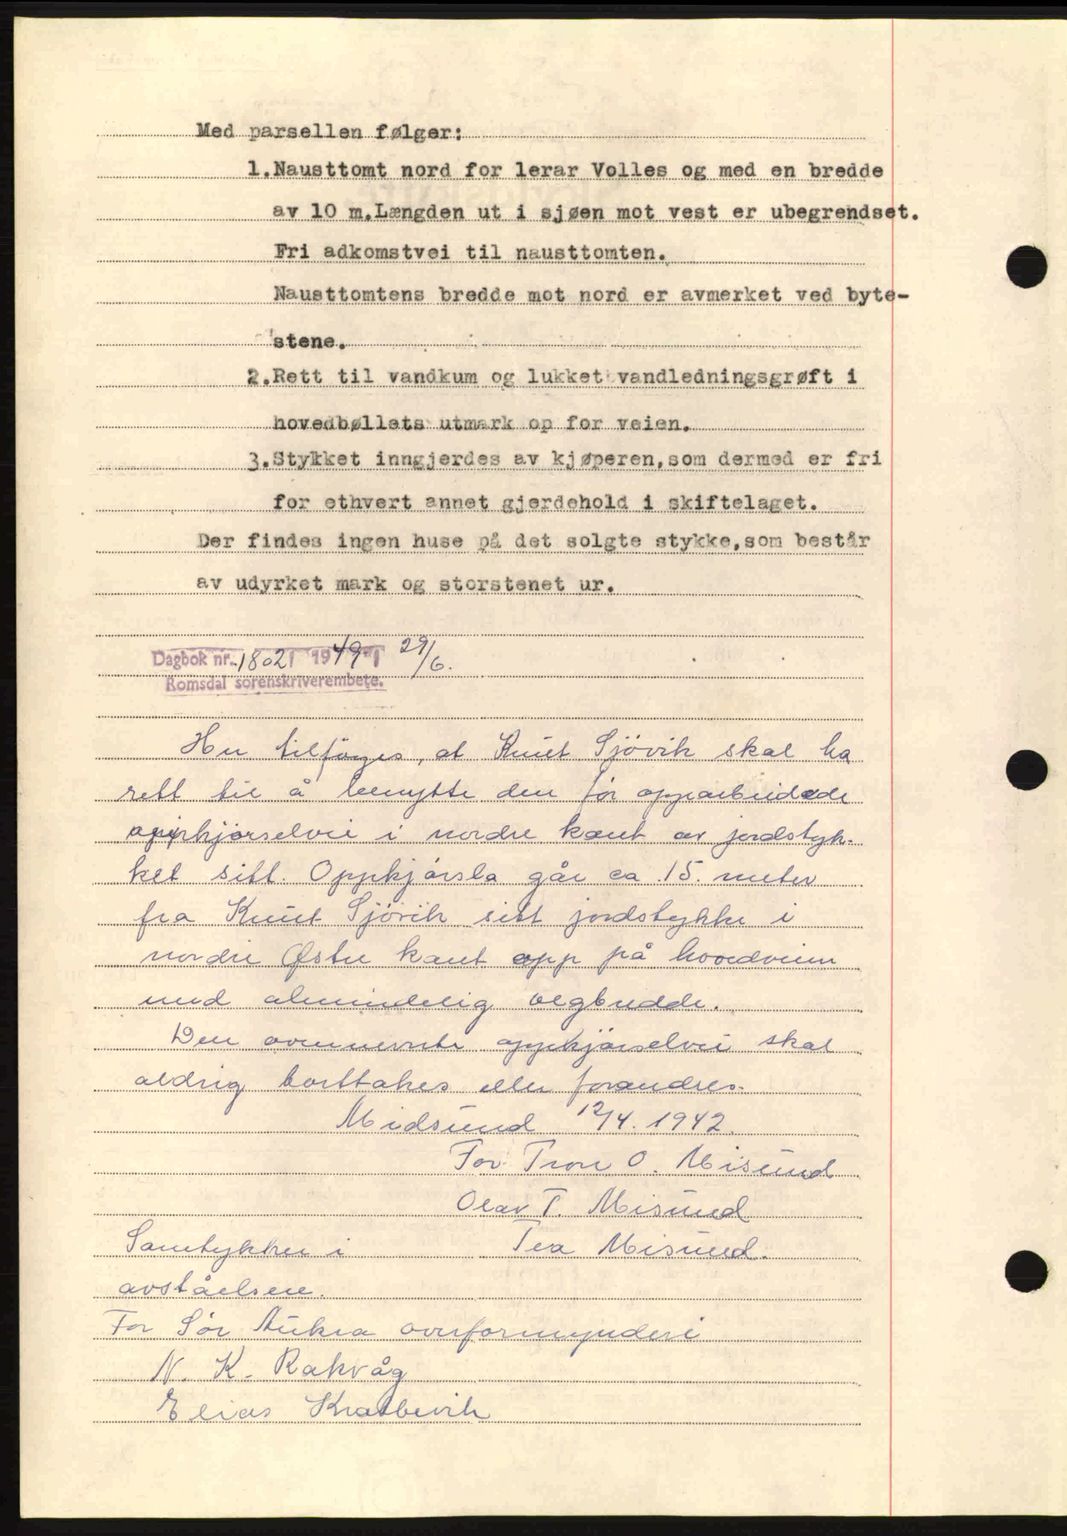 Med parsellen følger:
1.Nausttomt nord for lerar Volles og med en bredde
av 10 m.Længden ut i sjøen mot vest er ubegrendset.
Fri adkomstvei til nausttomten.
Nausttomtens bredde mot nord er avmerket ved byte-
stene.
2.Rett til vandkum og lukket vandledningsgrøft i
hovedbøllets utmark op for veien.
3.Stykket inngjerdes av kjøperen,som dermed er fri
for ethvert annet gjerdehold i skiftelaget.
Der findes ingen huse på det solgte stykke,som består
av udyrket mark og storstenet ur.
Dagbok nr. 1802 1949 29/6.
Romsdal sorenskriverembete.
Her tilföyes, at Knut Sjövik skal ha
rett til å benytte den for opparbeidede
oppkjörselvei i nordre kant av jordstyk-
ket sitt. Oppkjörsla går ca. 15. meter
fra Knut Sjövik sitt jordstykke i
nordre Østre kant opp på hovedveien
med almindelig vegbredde.
Den ovennevnte oppkjörselvei skal
aldrig borttakes eller forandres.
Midsund 12/4. 1942.
For Tron O. Misund
Olav T. Misund
Tea Misund.
Samtykker i
avståelsen.
For Sör Aukra overformynderi
N. K. Rakvåg
Elias